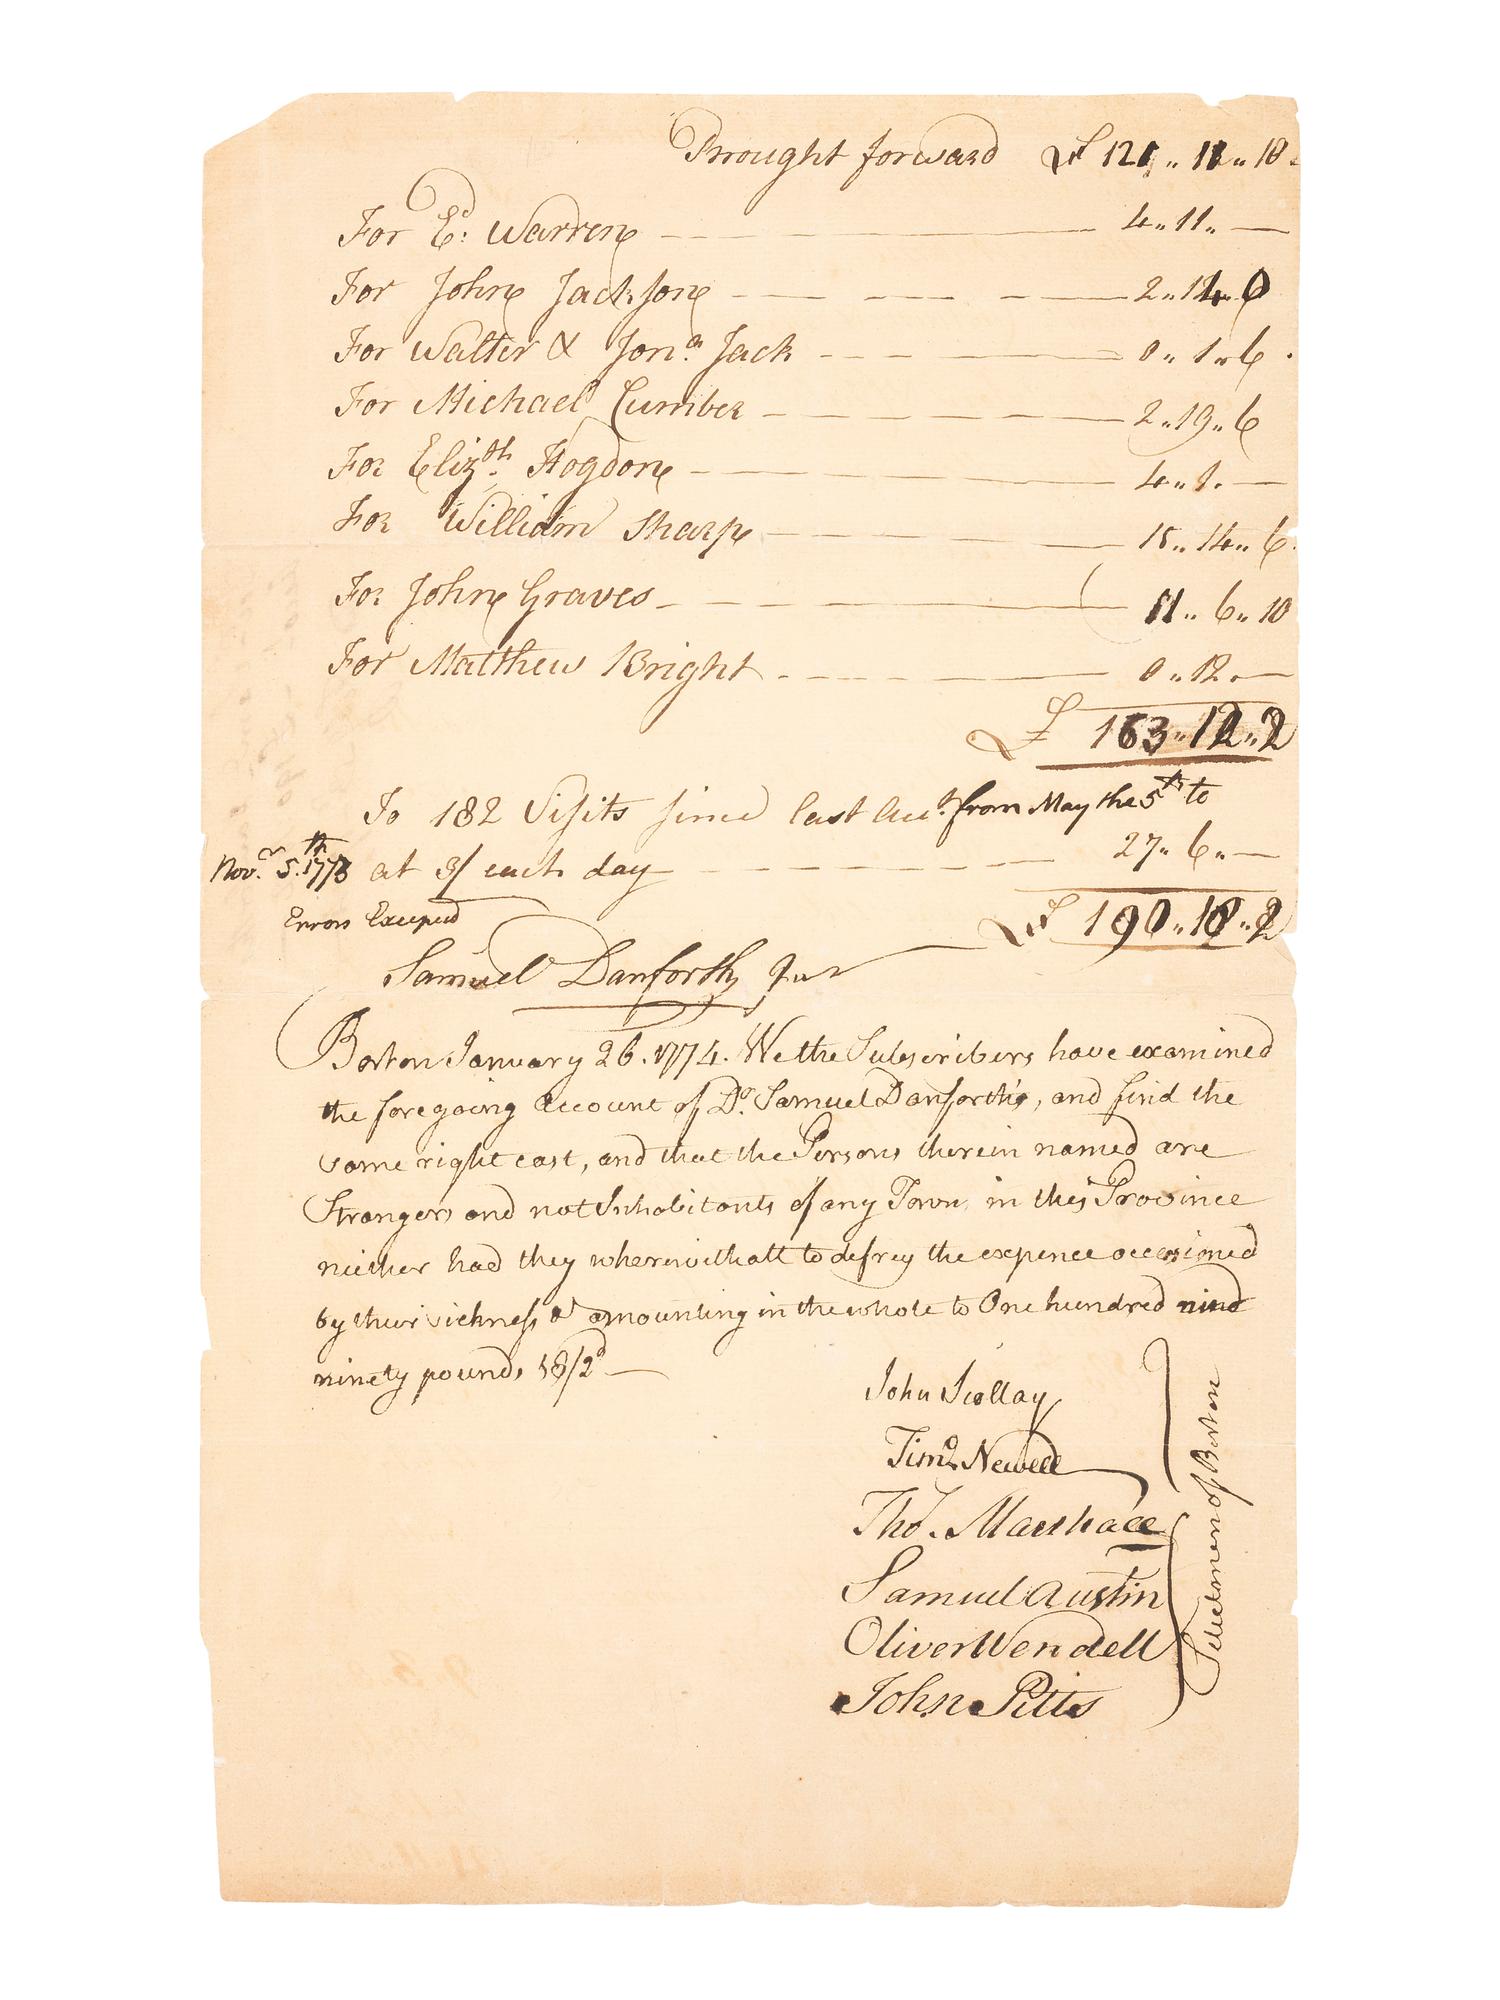 Brought forward £ 121.. 11.. 10
For Ed: Warren 4.. 11.. —
For John Jackson 2.. 14.. 0
For Walter & Jona. Jack 0.. 1.. 6
For Michael Cumber 2.. 19.. 6
For Elizth. Hogdon 4.. 1. —
For William Sharp 15.. 14.. 6
For John Graves 11.. 6.. 10
For Matthew Bright 0.. 12. —
£ 163.. 12.. 2
To 182 Visits since last Acct. from May the 5th to
Novr. 5th. 1773 at 3/ each day 27.. 6.. —
Errors Excepted £ 190.. 18.. 2
Samuel Danforth Junr
Boston January 26. 1774. We the Subscribers have examined
the foregoing account of Dr. Samuel Danforth's, and find the
same right cast, and that the Persons therein named are
Strangers and not Inhabitants of any Town in this Province
neither had they wherewithall to defrey the expence occasioned
by their sickness & amounting in the whole to One hundred nine
ninety pounds 18/2d —
John Scollay
Timo Newell
Tho. Marshall
Samuel Austin
Oliver Wendell
John Pitts
Selectmen of Boston